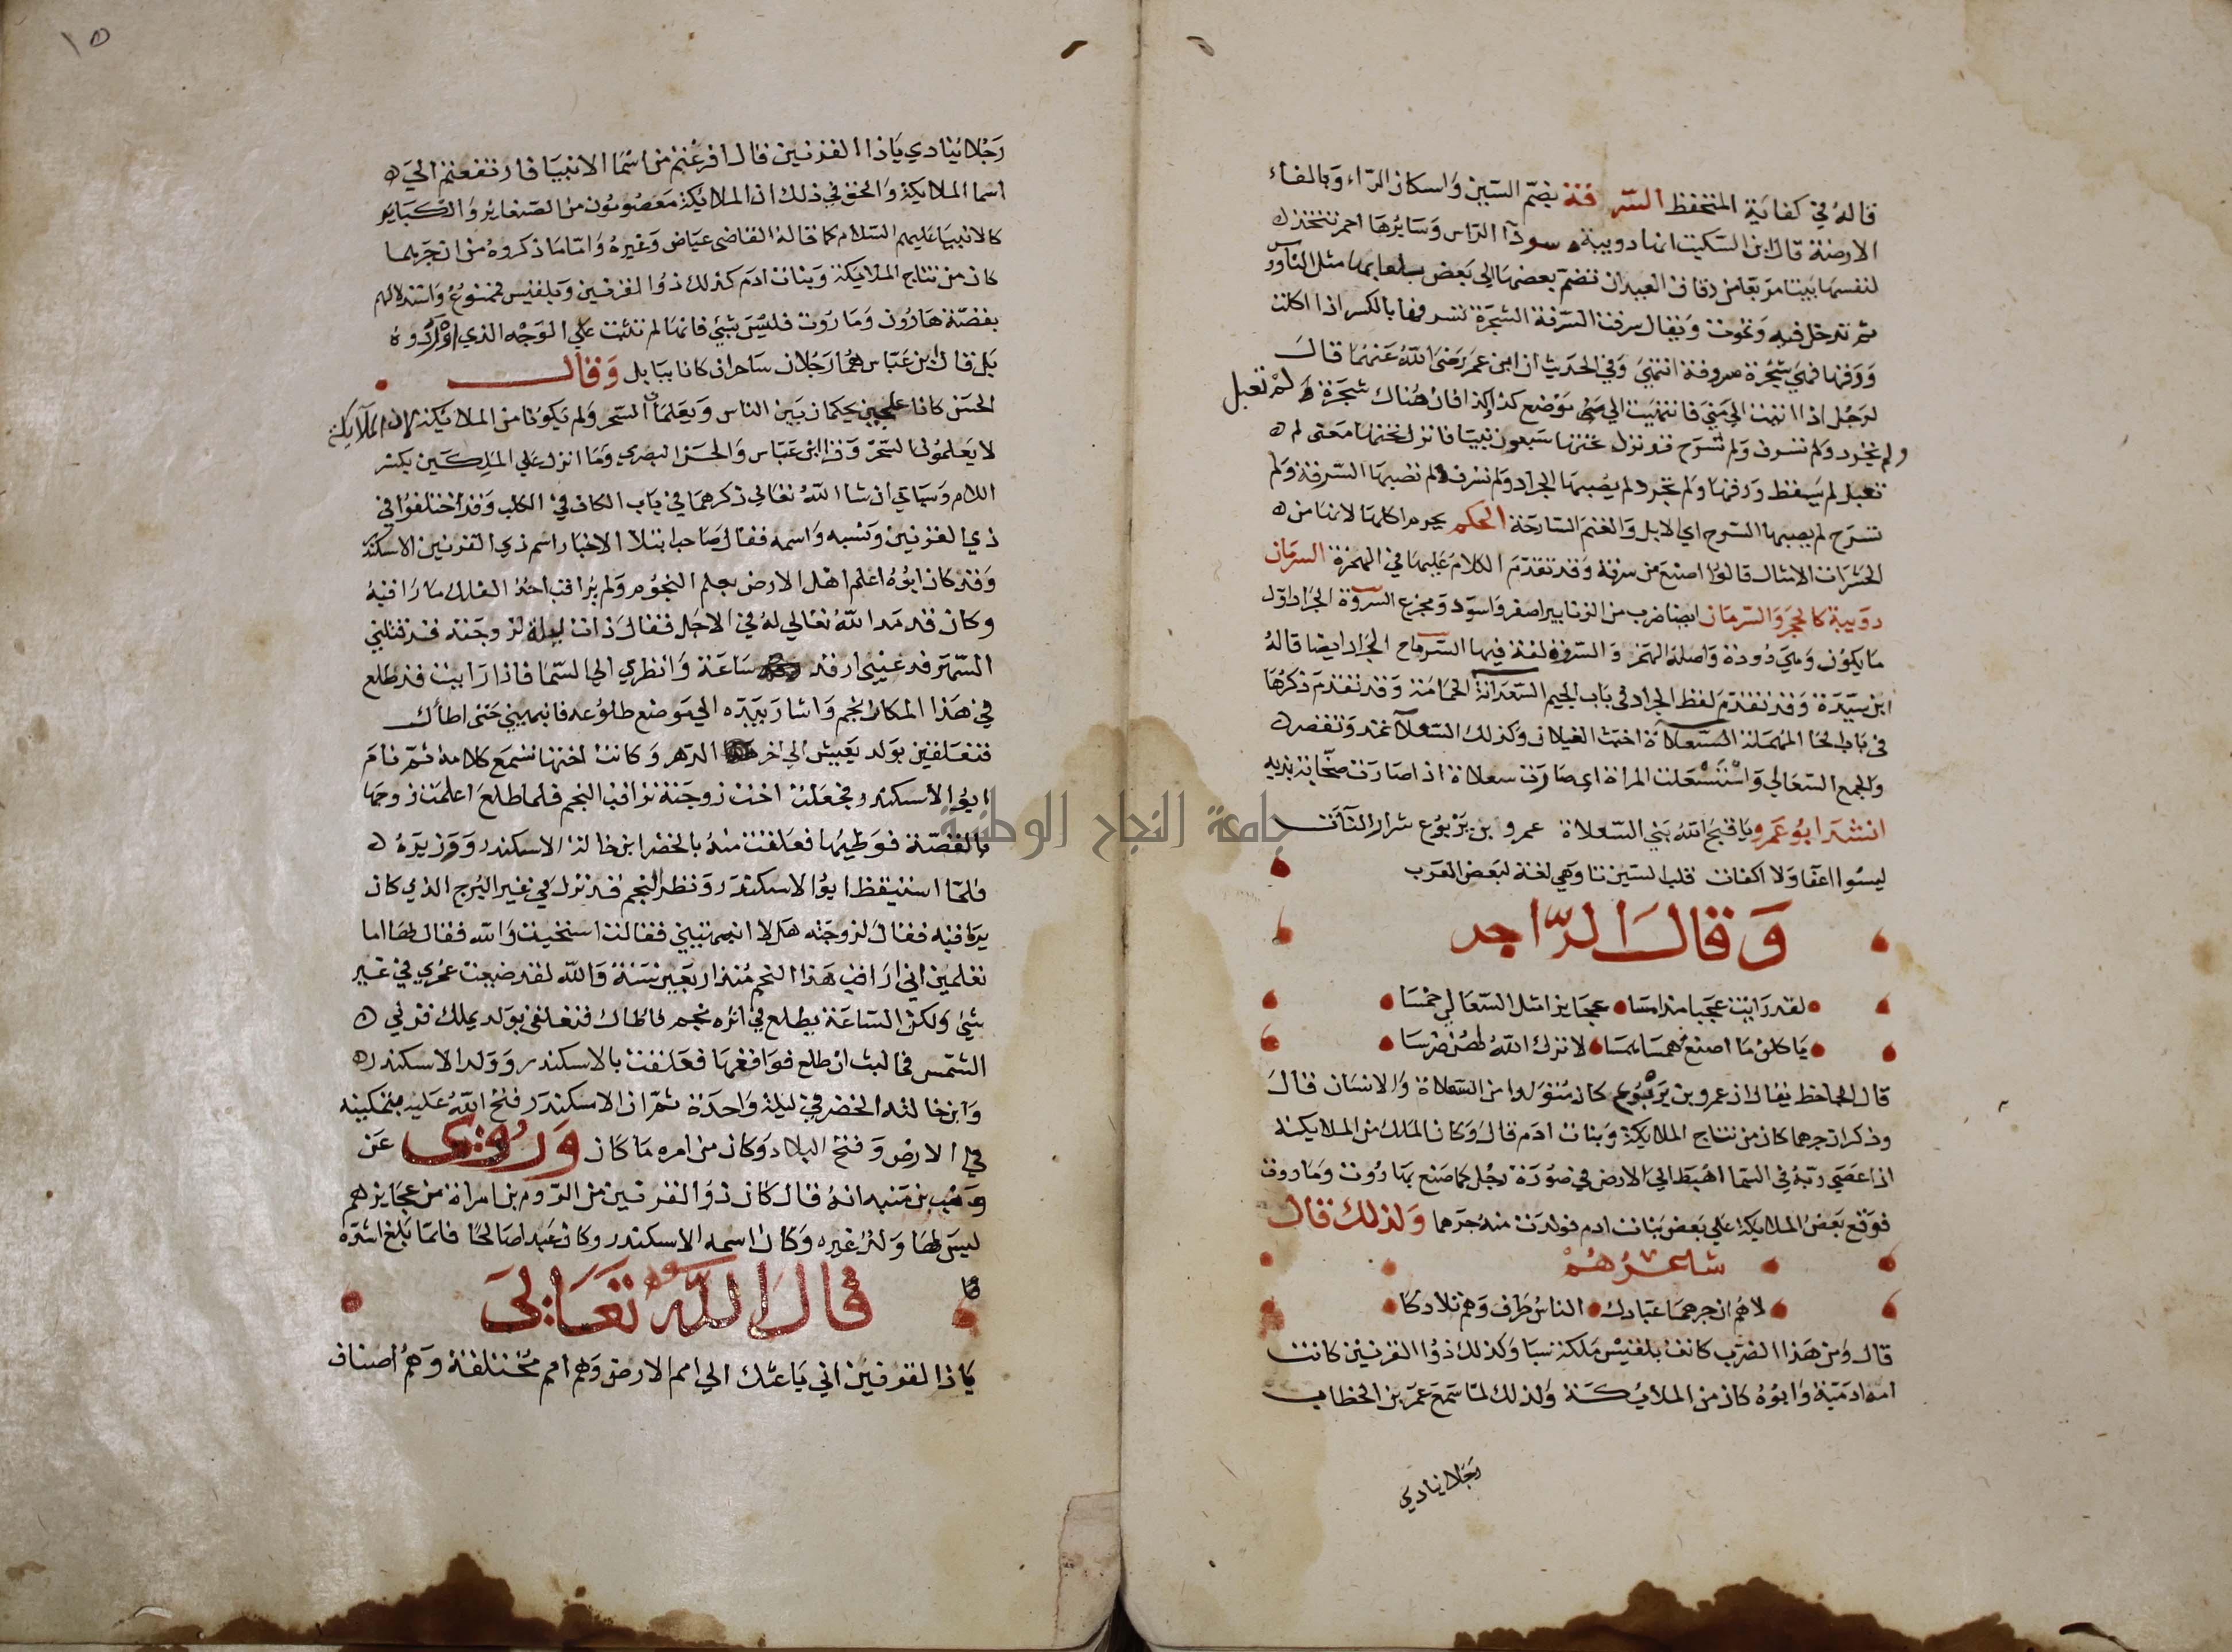 قاله في كفاية المتحفظ السرفة بضم السين واسكان الراء وبالفاء
الارضة قال ابن السكيت انها دويبة سودآ الراس وسايرها احمر تتخذ
لنفسها بيتا مربعا من دقاق العيدان تضم بعضها الي بعض بلعابها مثل الناوس
ثم تدخل فيه وتموت ويقال سرفت السرفة الشجرة تسرفها بالكسر اذا اكلت
ورقها فهي شجرة مسروفة انتهي وفي الحديث ان ابن عمر رضي الله عنهما قال
لرجل اذا اتيت الي مني فانتهيت الي موضع كذا وكذا فان هناك شجرة لم تعبل
ولم تجرد ولم تسرف ولم تسرح قد نزل تحتها سبعون نبيا فانزل تحتها معني لم
تعبل لم يسقط ورقها ولم تجرد لم يصبها الجراد ولم تسرف لم تصبها السرفة ولم
تسرح لم يصبها السرح اي الابل والغنم السارحة الحكم يحرم اكلها لانها من
الحشرات الامثال قالوا اصنع من سرفة وقد تقدم الكلام عليها في الهمزة السرمان
دويبة كالحجر والسرمان ايضا ضرب من الزنابير اصفر واسود ومجزع السروة الجراد اول
ما يكون وهي دودة واصله الهمز والسروة لغة فيها السرماح الجراد ايضا قاله
ابن سيدة وقد تقدم لفظ الجراد في باب الجيم السعدانة الحمامة وقد تقدم ذكرها
في باب الحا المهملة السعلاة اخبث الغيلان وكذلك السعلا تمد وتقصر
والجمع السعالي واستسعلت المراة اي صارت سعلاة اذا صارت صخابة بذيه
انشد ابو عمرو يا قبح الله بني السعلاة عمرو بن يربوع شرار النات
ليسوا اعفا ولا اكفات قلب السين تا وهي لغة لبعض العرب
وقال الراجز
لقد رايت عجبا مذ امسا عجايزا مثل السعالي خمسا
ياكلن ما اصنع همسا همسا لا ترك الله لهن ضرسا
قال الجاحظ يقال ان عمرو بن يربوع كان متولدا من السعلاة والانسان قال
وذكر ان جرهما كان من نتاج الملايكة وبنات ادم قال وكان الملك من الملايكة
اذا عصي ربه في السما اهبط الي الارض في صورة رجل كما صنع بهاروت وماروت
فوقع بعض الملايكة علي بعض بنات ادم فولدت منه جرهما ولذلك قال
شاعرهم
لاهم ان جرهما عبادك الناس طرف وهم تلادكا
قال ومن هذا الضرب كانت بلقيس ملكة سبا وكذلك ذوا القرنين كانت
امه ادمية وابوه كان من الملايكة ولذلك لما سمع عمر بن الخطاب
رجلا ينادي
١٥
رجلا ينادي ياذا القرنين قال افرغتم من اسما الانبيا فارتفعتم الي
اسما الملايكة والحق في ذلك ان الملايكة معصومون من الصغاير والكباير
كالانبيا عليهم السلام كما قاله القاضي عياض وغيره واما ما ذكروه من ان جرهما
كان من نتاج الملايكة وبنات ادم كذلك ذوا القرنين وبلقيس فممنوع واستدلالهم
بقصة هاروت وماروت فليس بشي فانها لم تثبت علي الوجه الذي اوردوه
بل قال ابن عباس هما رجلان ساحران كانا ببابل وقال
الحسن كانا علجين يحكمان بين الناس ويعلمان السحر ولم يكونا من الملايكة لان الملايكة
لا يعلمون السحر وقرا ابن عباس والحسن البصري وما انزل علي الملكين بكسر
اللام وسياتي ان شا الله تعالي ذكرهما في باب الكاف في الكلب وقد اختلفوا في
ذي القرنين ونسبه واسمه فقال صاحب ابتلآ الاخيار اسم ذي القرنين الاسكندر
وقد كان ابوه اعلم اهل الارض بعلم النجوم ولم يراقب احد الفلك ما راقبه
وكان قد مد الله تعالي له في الاجل فقال ذات ليلة لزوجته قد قتلني
السهر فدعيني ارقد ساعة وانظري الي السما فاذا رايت قد طلع
في هذا المكان نجم واشار بيده الي موضع طلوعه فانبهيني حتي اطأك
فتعلقين بولد يعيش الي اخر الدهر وكانت اختها تسمع كلامه ثم نام
ابوا الاسكندر فجعلت اخت زوجته تراقب النجم فلما طلع اعلمت زوجها
بالقصة فوطيها فعلقت منه بالخضر ابن خالة الاسكندر ووزيره
فلما استيقظ ابوا الاسكندر ونظر النجم قد نزل في غير البرج الذي كان
يرقبه فقال لزوجته هلا انبهتيني فقالت استحييت والله فقال لها اما
تعلمين اني اراقب هذا النجم منذ اربعين سنة والله لقد ضيعت عمري في غير
شي ولكن الساعة يطلع في اثره نجم فاطاك فتعلقي بولد يملك قرني
الشمس فما لبث ان طلع فواقعها فعلقت بالاسكندر وولد الاسكندر
وابن خالته الخضر في ليلة واحدة ثم ان الاسكندر فتح الله عليه بتمكينه
في الارض وفتح البلاد وكان من امره ما كان وروي عن
وهب بن منبه انه قال كان ذو القرنين من الروم بن امراة من عجايزهم
ليس لها ولد غيره وكان اسمه الاسكندر وكان عبدا صالحا فلما بلغ اشده
قال الله تعالي
ياذا القرنين اني باعثك الي امم الارض وهم امم مختلفة وهم اصناف
جامعة النجاح الوطنية